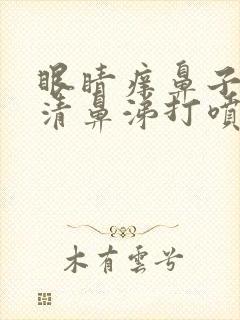 眼睛痒鼻子
清鼻涕打喷
木有雲兮